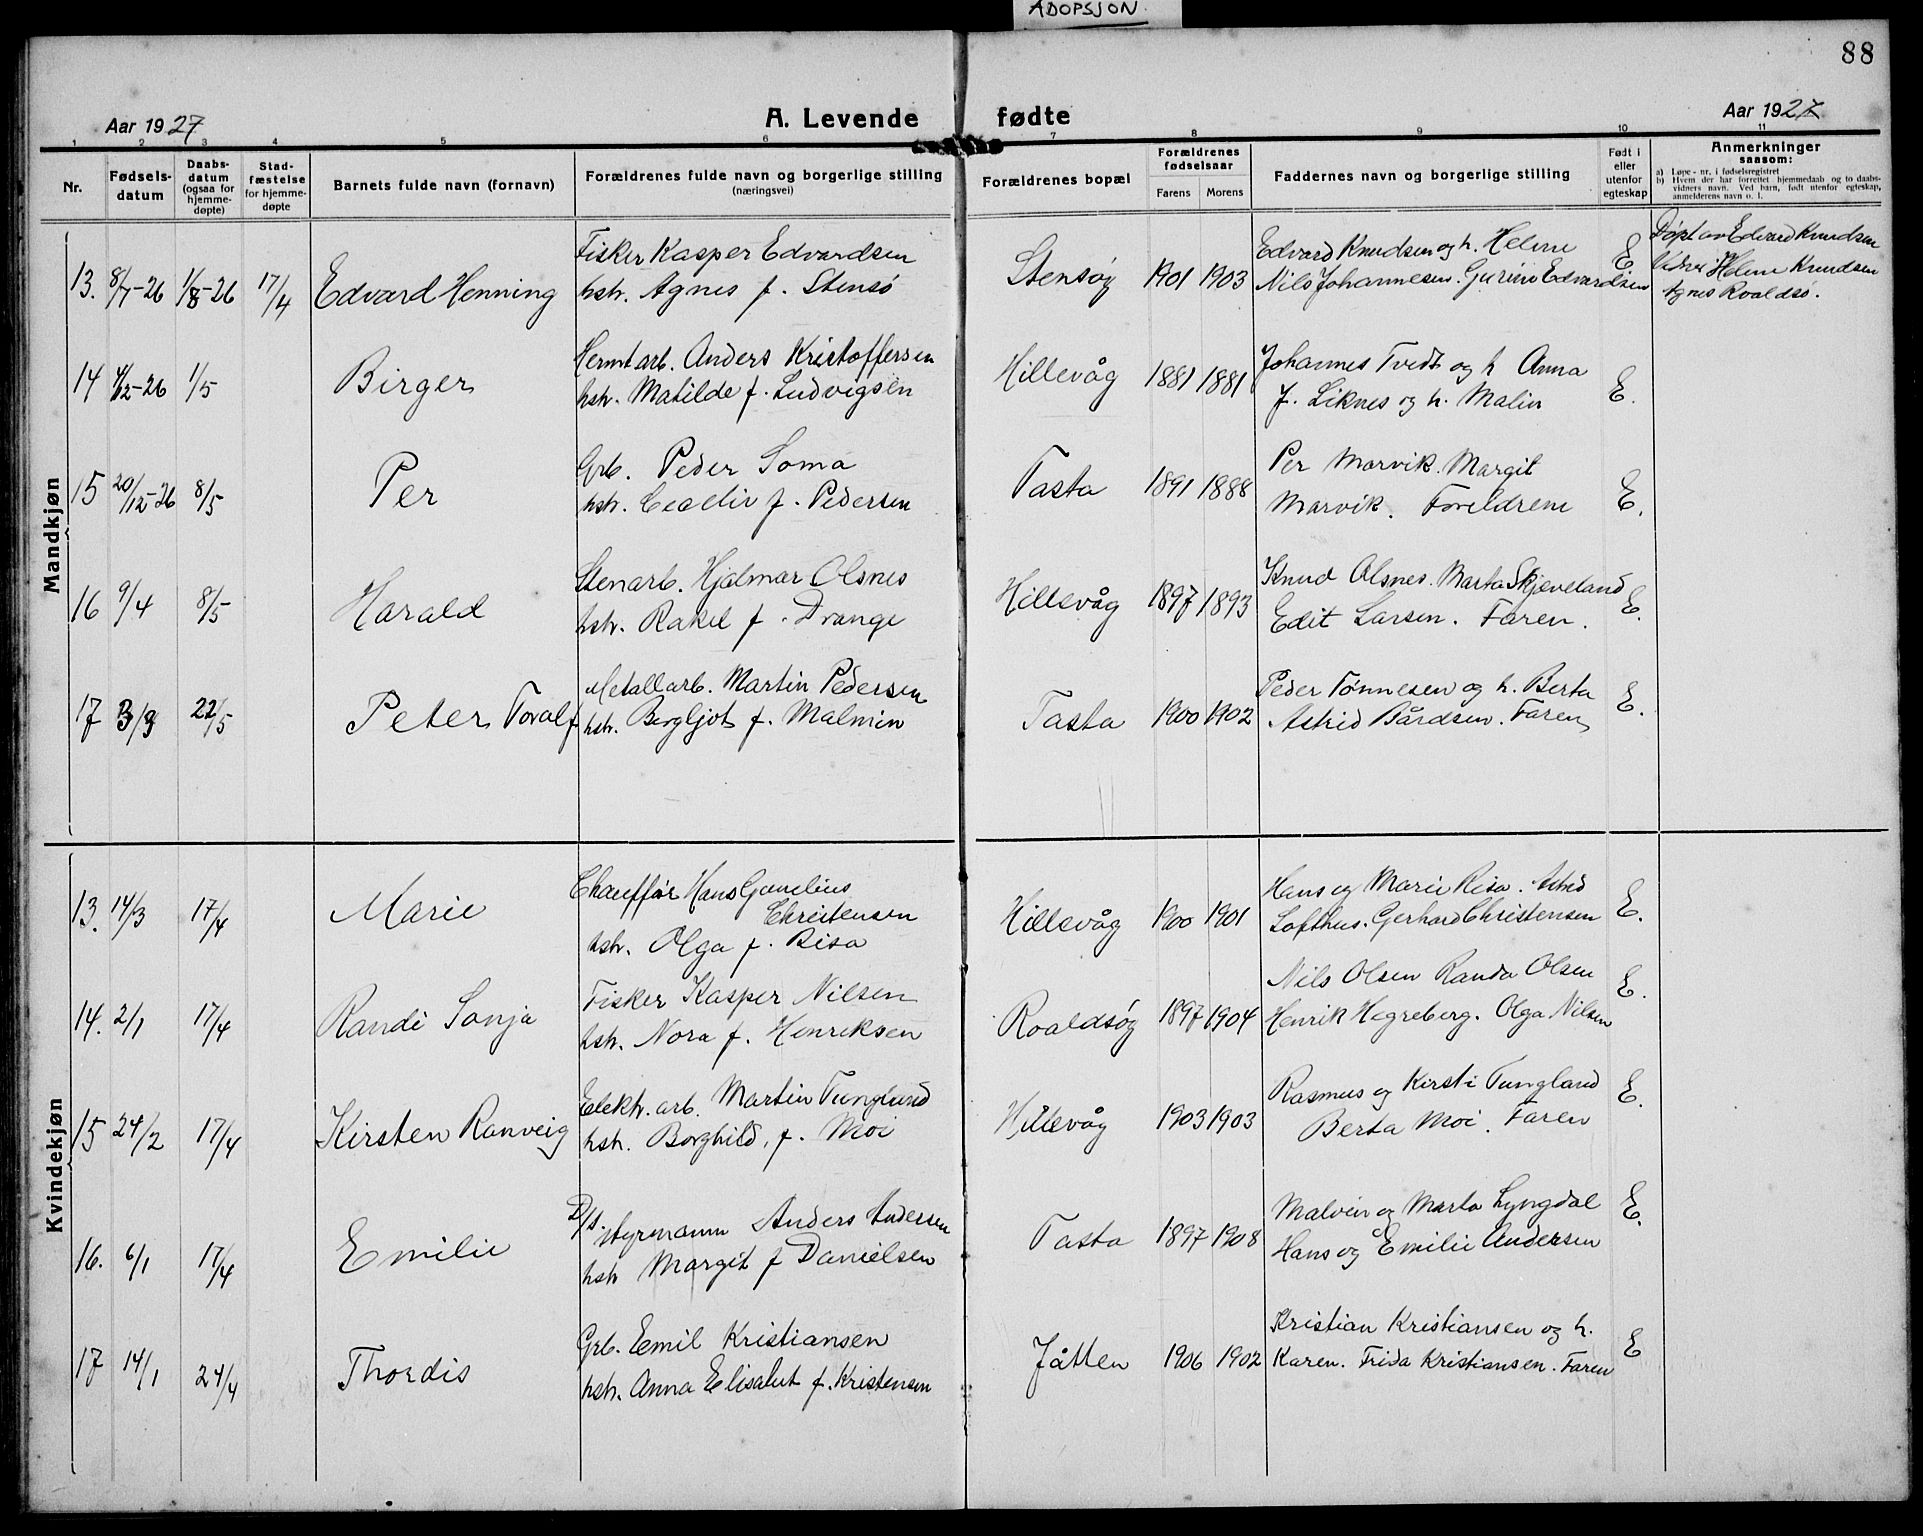 ADOPSJON.
88
Aar 1927
A. Levende fødte
Aar 1927
1 2 3 4 5 6 7 8 9 10 11
Nr.
Fødselsdatum
Daabsdatum (ogsaa for hjemmedøpte)
Stadfæstelse for hjemmedøpte
Barnets fulde navn (fornavn)
Forældrenes fulde navn og borgerlige stilling
(næringsvei)
Forældrenes bopæl
Forældrenes fødselsaar
Farens Morens
Faddernes navn og borgerlige stilling
Født i eller utenfor egteskap
Anmerkninger
saasom:
a) Løpe-nr. i fødselsregistret
b) Hvem der har forrettet hjemmedaab og to daabsvidners navn. Ved barn, født utenfor egteskap, anmelderens navn o. l.
Mandkjøn
13. 8/7-26 1/8-26 17/4 Edvard Henning
Fisker Kasper Edvardsen
hstr. Agnes f. Stensø
Stensøy 1901 1903
Edvard Knudsen og h. Helene
Nils Johannesen. Gurine Edvardsen
E
Døpt av Edvard Knudsen
Vidner: Helene Knudsen
Agnes Roaldsø.
14 4/12-26 1/5 Birger
Hermt arb. Anders Kristoffersen
hstr. Matilde f. Ludvigsen
Hillevåg 1881 1881
Johannes Tvedt og h Anna
J. Liknes og h. Malin
E.
15 20/12-26 8/5 Per
Grb. Peder Soma
hstr. f. Pedersen
Tasta 1891 1888
Per Marvik. Margit
Marvik. Foreldrene
E.
16 9/4 8/5 Harald
Stenarb. Hjalmar Olsnes
hstr. Rakel f. Drange
Hillevåg 1897 1893
Knud Olsnes. Marta Skjeveland
Edit Larsen. Faren.
E.
17 3/3 22/5 Peter Toralf
Metallarb. Martin Pedersen
hstr. Bergljot f. Malmin
Tasta 1900 1902
Peder Tønnesen og h. Berta
Astrid Bårdsen. Faren
E.
Kvindekjøn
13. 14/3 17/4 Marie
Chauffør Hans Cornelius
Christensen
hstr. Olga f. Risa
Hillevåg 1900 1901
Hans og Marie Risa. Astrid
Lofthus. Gerhard Christensen
E.
14. 2/1 17/4 Randi Sonja
Fisker Kasper Nilsen
hstr. Nora f. Henriksen
Roaldsøy 1897 1904
Nils Olsen Randa Olsen
Henrik Hegreberg. Olga Nilsen
E.
15 24/2 17/4 Kirsten Ranveig
Elektr. arb. Martin Tungland
hstr. Borghild, f. Moi
Hillevåg 1903 1903
Rasmus og Kirsti Tungland
Berta Moi. Faren
E.
16. 6/1 17/4 Emilie
D/s. styrmann Anders Andersen
hstr Margit f Danielsen
Tasta 1897 1908
Malvin og Marta Lyngdal
Hans og Emilie Andersen
E.
17 14/1 24/4 Thordis
Grb. Emil Kristiansen
hstr. Anna Elisabet f. Kristensen
Jåtten 1906 1902
Kristian Kristiansen og h.
Karen. Frida Kristiansen. Faren
E